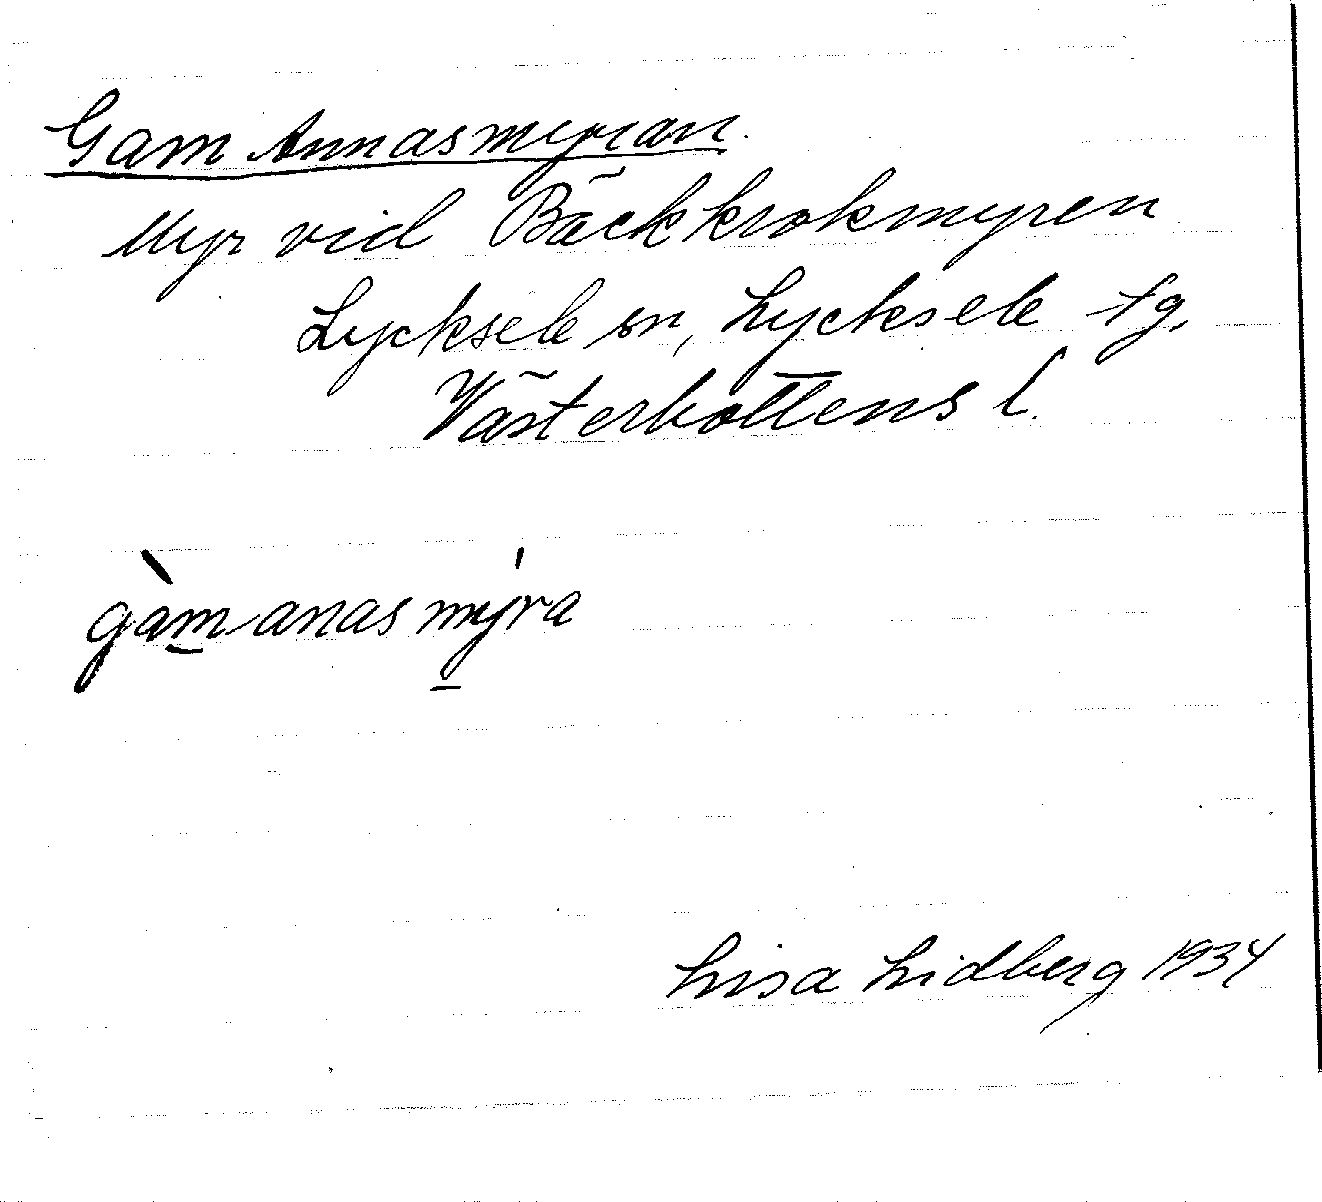 Gam Annasmyran.
Myr vid Bäckkrokmyren
Lycksele sn, Lycksele tg,
Västerbottens l.
gàm anas mýra
Lisa Lidberg 1934